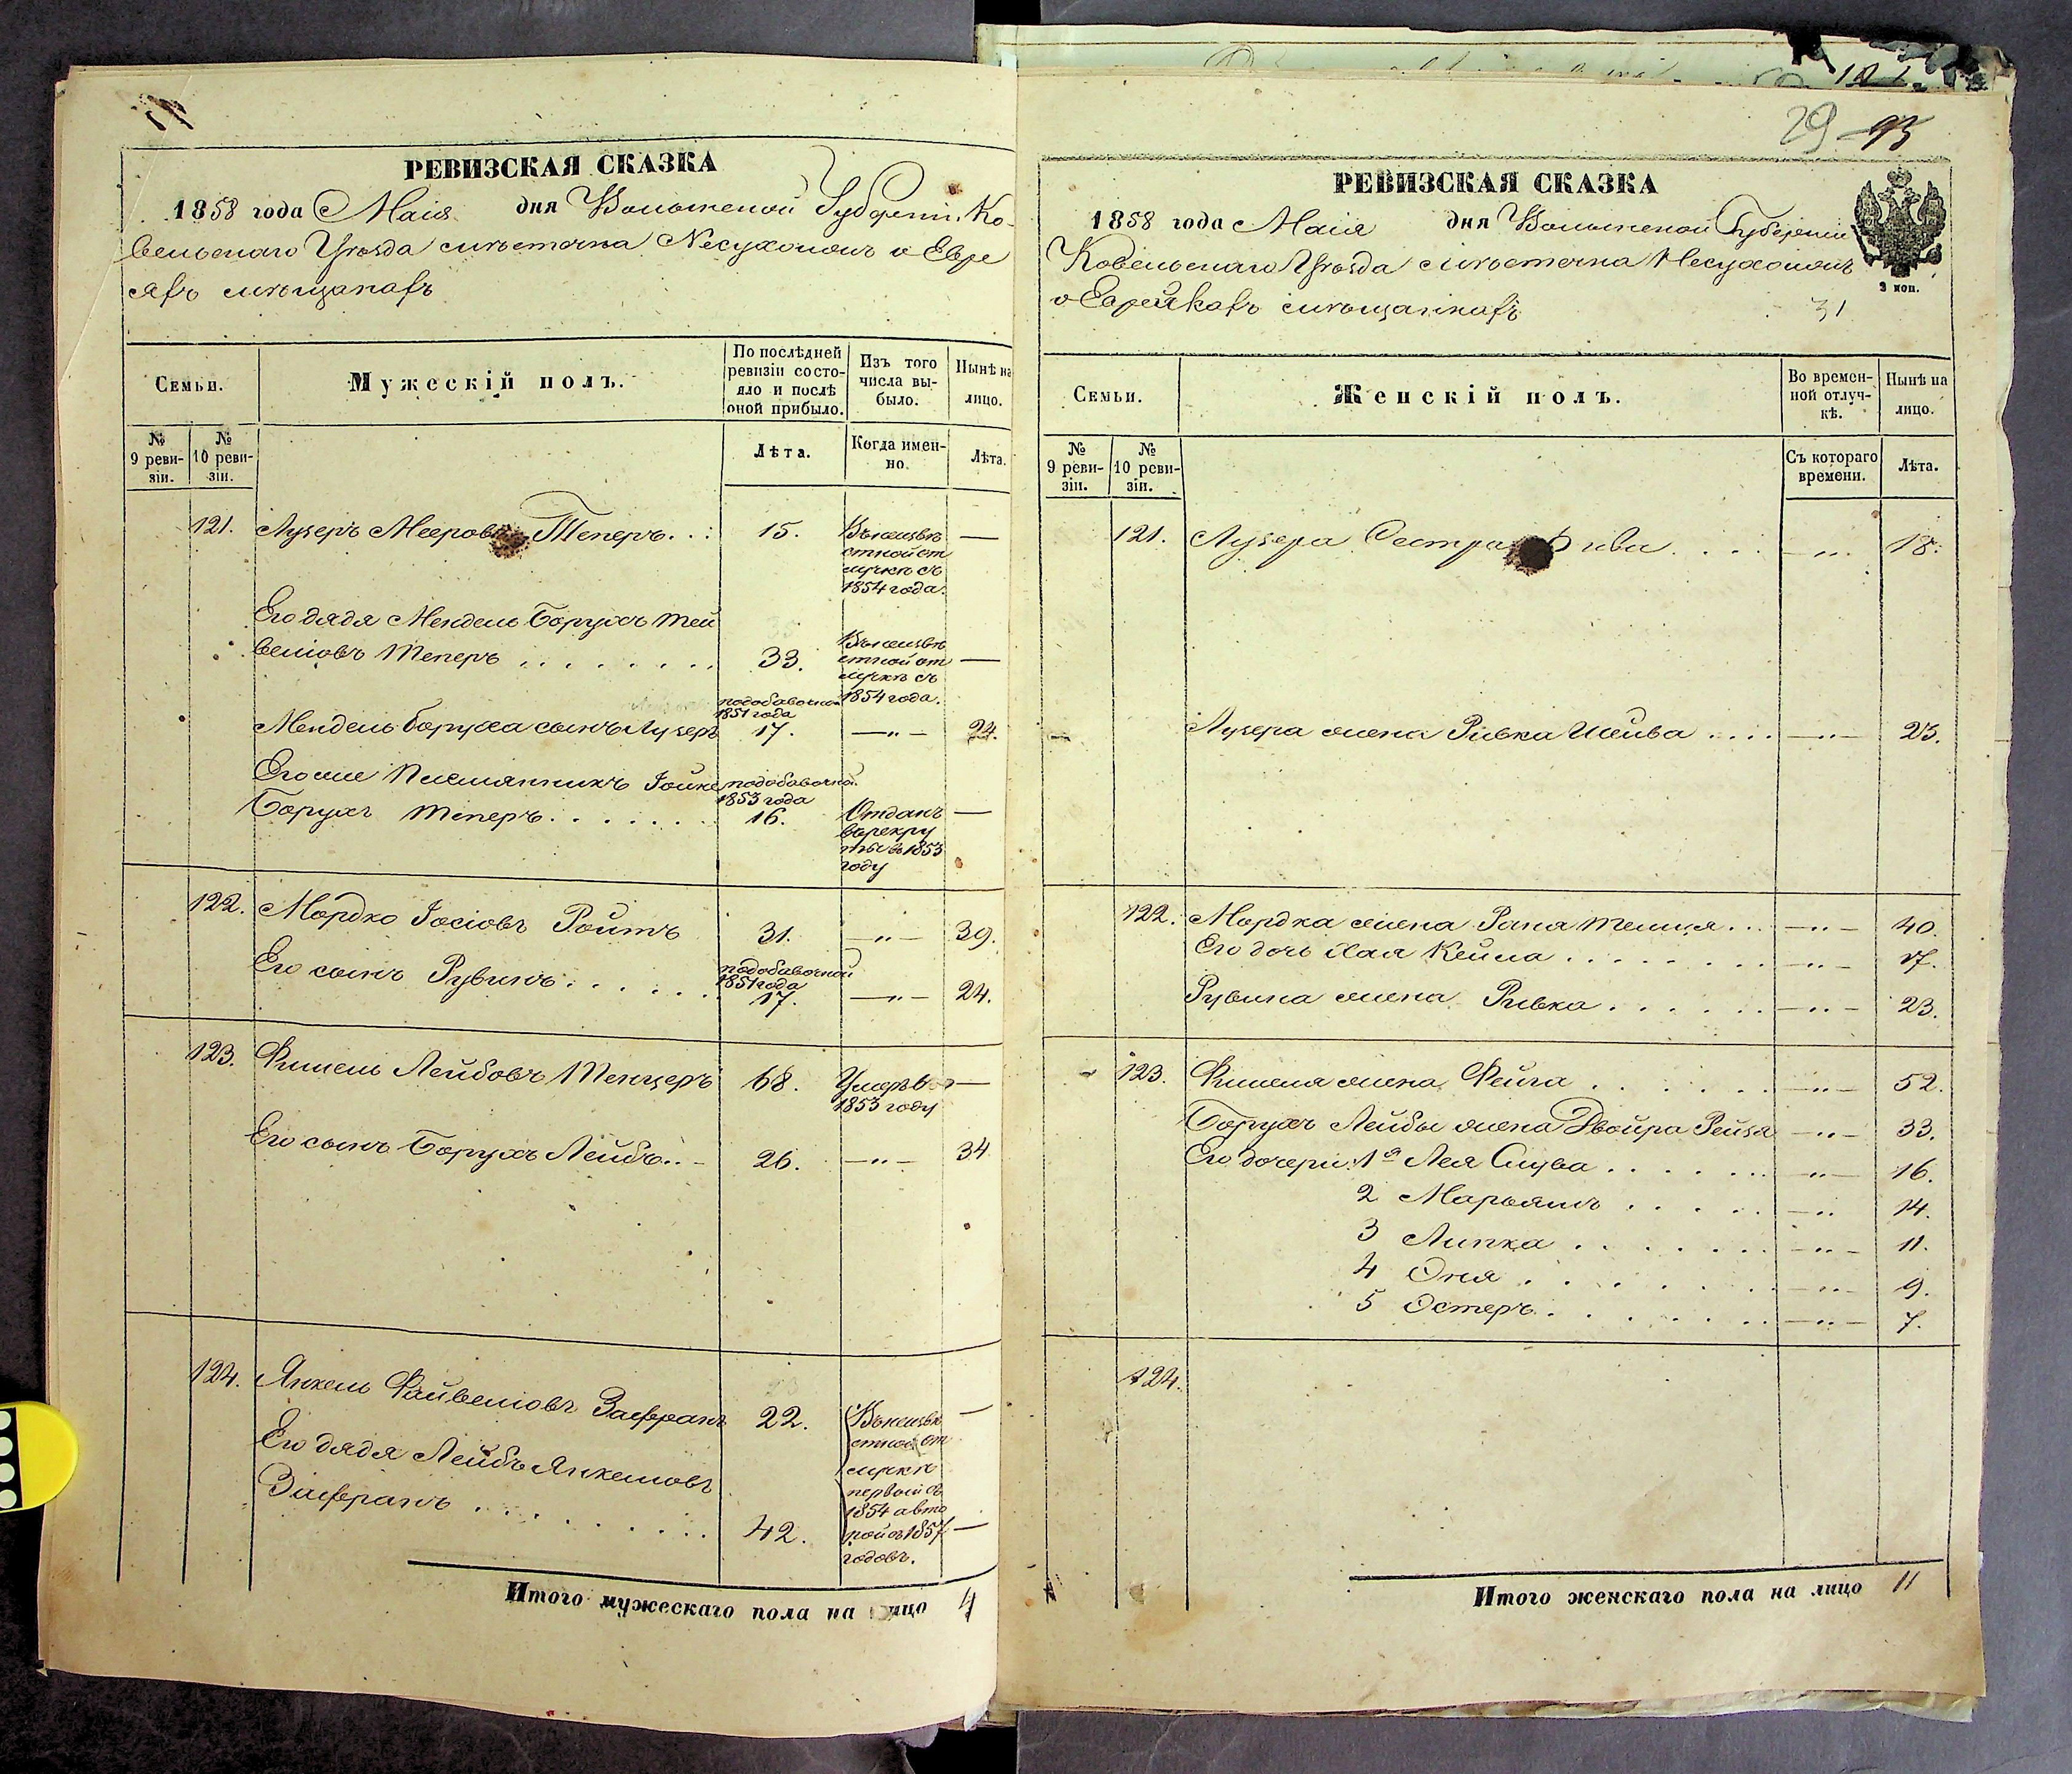 РЕВИЗСКАЯ СКАЗКА
1858 года Маія дня Волынской Губерніи, Ко-
вельскаго Уѣзда мѣстечка Несухоижъ о Евре
яхъ мѣщанахъ
Семьи.
Мужескій полъ.
По послѣдней ревизіи состо-
яло и послѣ оной прибыло.
Изъ того числа вы-
было.
Нынѣ на лицо.
№ 9 реви-
зіи.
№ 10 реви-
зіи.
Лѣта.
Когда имен-
но.
Лѣта.
121. Лузеръ Мееровъ Теперъ . . : 15. —
Въ неизвѣ
стной от
лучкѣ съ
1854 года.
Его дядя Мендель Борухъ Тей
веліовъ Теперъ . . . . . . . . 33. —
Въ неизвѣ
стной от
лучкѣ съ
1854 года.
по добавочной
1851 года
Мендель Боруха сынъ Лузеръ 17. —„— 24.
Его же Племянникъ Іойне
по добавочной
1853 года
Борухъ Теперъ . . . . . . . 16. —
Отданъ
в рекру
ты въ 1853
году
122. Мордко Іосіовъ Ройтъ 31. —„— 39.
по добавочной
1851 года
Его сынъ Рувинъ . . . . . . 17. —„— 24.
123. Фишель Лейбовъ Тенцеръ 68. Умеръ въ —
1853 году
Его сынъ Борухъ Лейбъ . . - 26. —„— 34
124. Янкель Файвеліовъ Зафранъ 22. —
Его дядя Лейбъ Янкеліовъ
Зафранъ . . . . . . . . . 42. —
Въ неизвѣ
стной от
лучкѣ
первой съ
1854 а вто
рой съ 1857
годовъ.
Итого мужескаго пола на лицо 4
29 93
РЕВИЗСКАЯ СКАЗКА
1858 года Маія дня Волынской Губерніи
Ковельскаго Уѣзда мѣстечка Несухоижъ
о Еврейкахъ мѣщанкахъ
3 коп.
31
Семьи.
Женскій полъ.
Во времен-
ной отлуч-
кѣ.
Нынѣ на лицо.
№ 9 реви-
зіи.
№ 10 реви-
зіи.
Съ котораго времени.
Лѣта.
121. Лузера Сестра . . . . —„— 18.
Лузера жена Ривка Шейва . . . . —„— 23.
122. Мордка жена Рана Темця . . . —„— 40.
Его дочь Хая Кейла . . . . . . . . —„— 17.
Рувина жена Ривка . . . . . . —„— 23.
123. Фишеля жена Фейга . . . . . . —„— 52.
Борухъ Лейбы жена Двойра Рейзя —„— 33.
Его дочери: 1я Лея Слува . . . . . . —„— 16.
2 Марьямъ . . . . . —„ 14.
3 Липка . . . . . . . —„— 11.
4 Эня . . . . . . . . —„— 9.
5 Эстеръ . . . . . . . . —„— 7.
124.
Итого женскаго пола на лицо 11